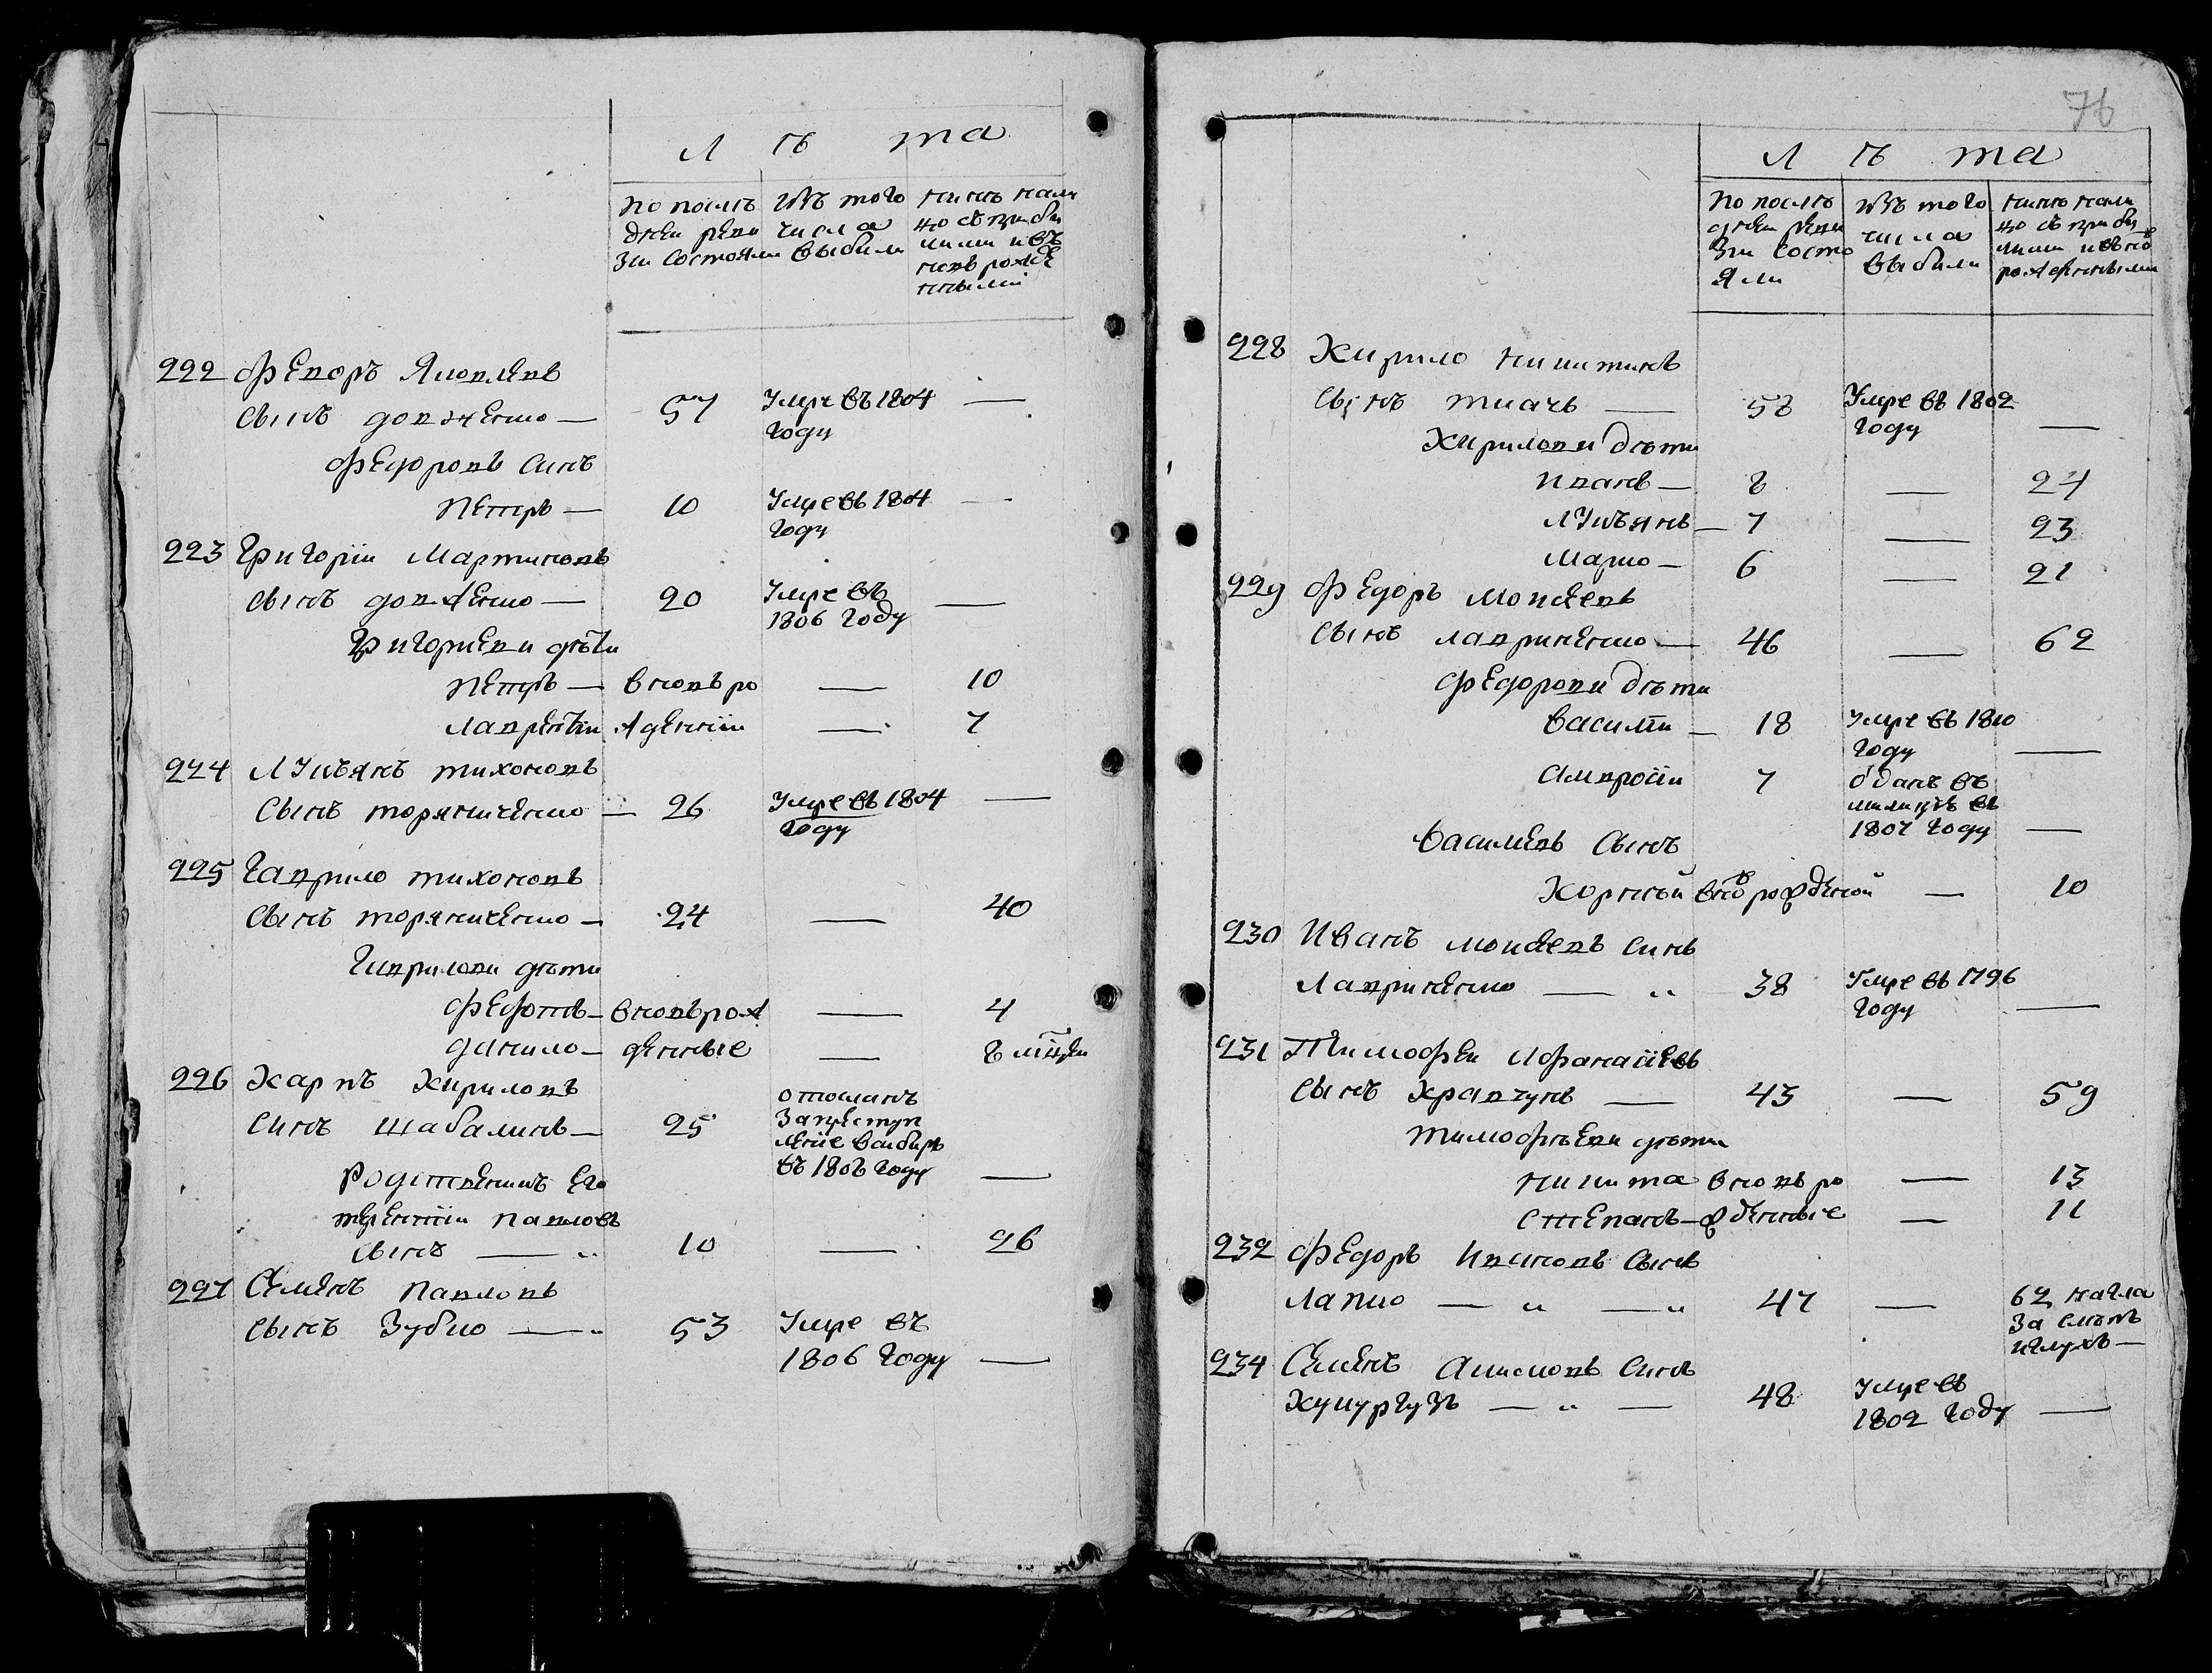 Л ѣ та
По послѣ
дней реви
зіи состояли
Изъ того
числа
выбыли
Нынѣ нали
цо съ прибы
лими и въ
новь рожде
нными
222 Федоръ Яковлевъ
сынъ довженко — 57 Умре въ 1804 году —
Федоровъ синъ
Петръ — 10 Умре въ 1804 году —
223 Григорій Мартиновъ
сынъ довженко — 20 Умре въ 1806 году —
Григориеви дѣти
Петръ — вновь ро — 10
Лаврентій жденніи — 7
224 Лукъянъ тихоновъ
сынъ торяниченко — 26 Умре въ 1804 году —
225 Гаврило тихоновъ
сынъ торяниченко — 24 — 40
Гаврилови дѣти
Федотъ — вновь рож — 4
данило — денные — 8 мцеи
226 Карпъ Кириловъ
синъ шабалинъ — 25 отосланъ
за преступ
леніе в сибиръ
въ 1808 году —
Родственикъ Его
терентій Павловъ
сынъ — 10 — 26
227 Семенъ Павловъ
сынъ Зубко — 53 Умре въ
1806 году —
76
Л ѣ та
По послѣ
дней реви
зіи состо
яли
Изъ того
числа
выбили
Нинѣ нали
цо съ прибы
лими и вновь
рожденными
228 Кирило никитинъ
сынъ ткачъ — 58 Умре въ 1802 году —
Кирилови дѣти
Иванъ — 8 — 24
Лукъянъ — 7 — 23
Марко — 6 — 21
229 Федоръ Моисеевъ
сынъ лавриненко — 46 — 62
Федорови дѣти
василій — 18 Умре въ 1810 году —
Амвросій 7 отданъ въ
милицію въ
1807 году —
василиевъ сынъ
Корній вновь рожденой — 10
230 Иванъ моисеевъ синъ
Лавриненко — 38 Умре въ 1796 году —
231 Тимофей Афанасіевъ
сынъ Кравчунъ — 43 — 59
тимофѣеви дѣти
никита вновь ро — 13
степанъ — жденные — 11
232 Федоръ Ивановъ сынъ
Лапко — 47 — 62 нагла
за смѣтъ
и глухъ —
234 Семенъ Акимовъ синъ
Кукургузъ — 48 Умре въ
1802 году —